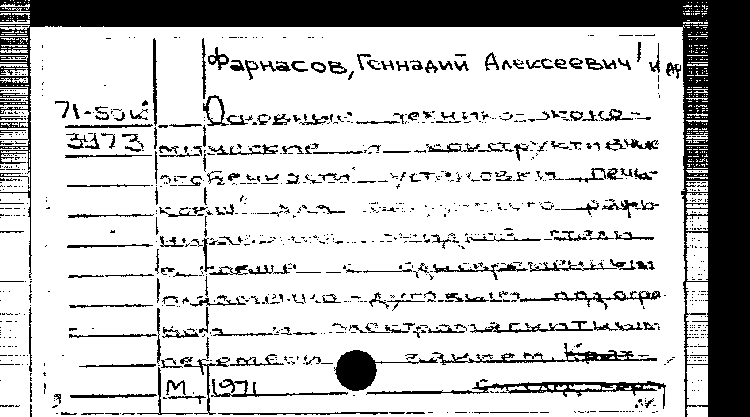 Фарнасов, Геннадий Алексеевич и др
71-50к Основные технико-эконо-
3373 мические и конструктивные
особенности установки „печь-
ковш" для вакуумного рафи-
нирования жидкой стали
в ковше с одновременным
плазменно-дуговым подогре
вом и электромагнитным
перемеши ванием.
М., 1971